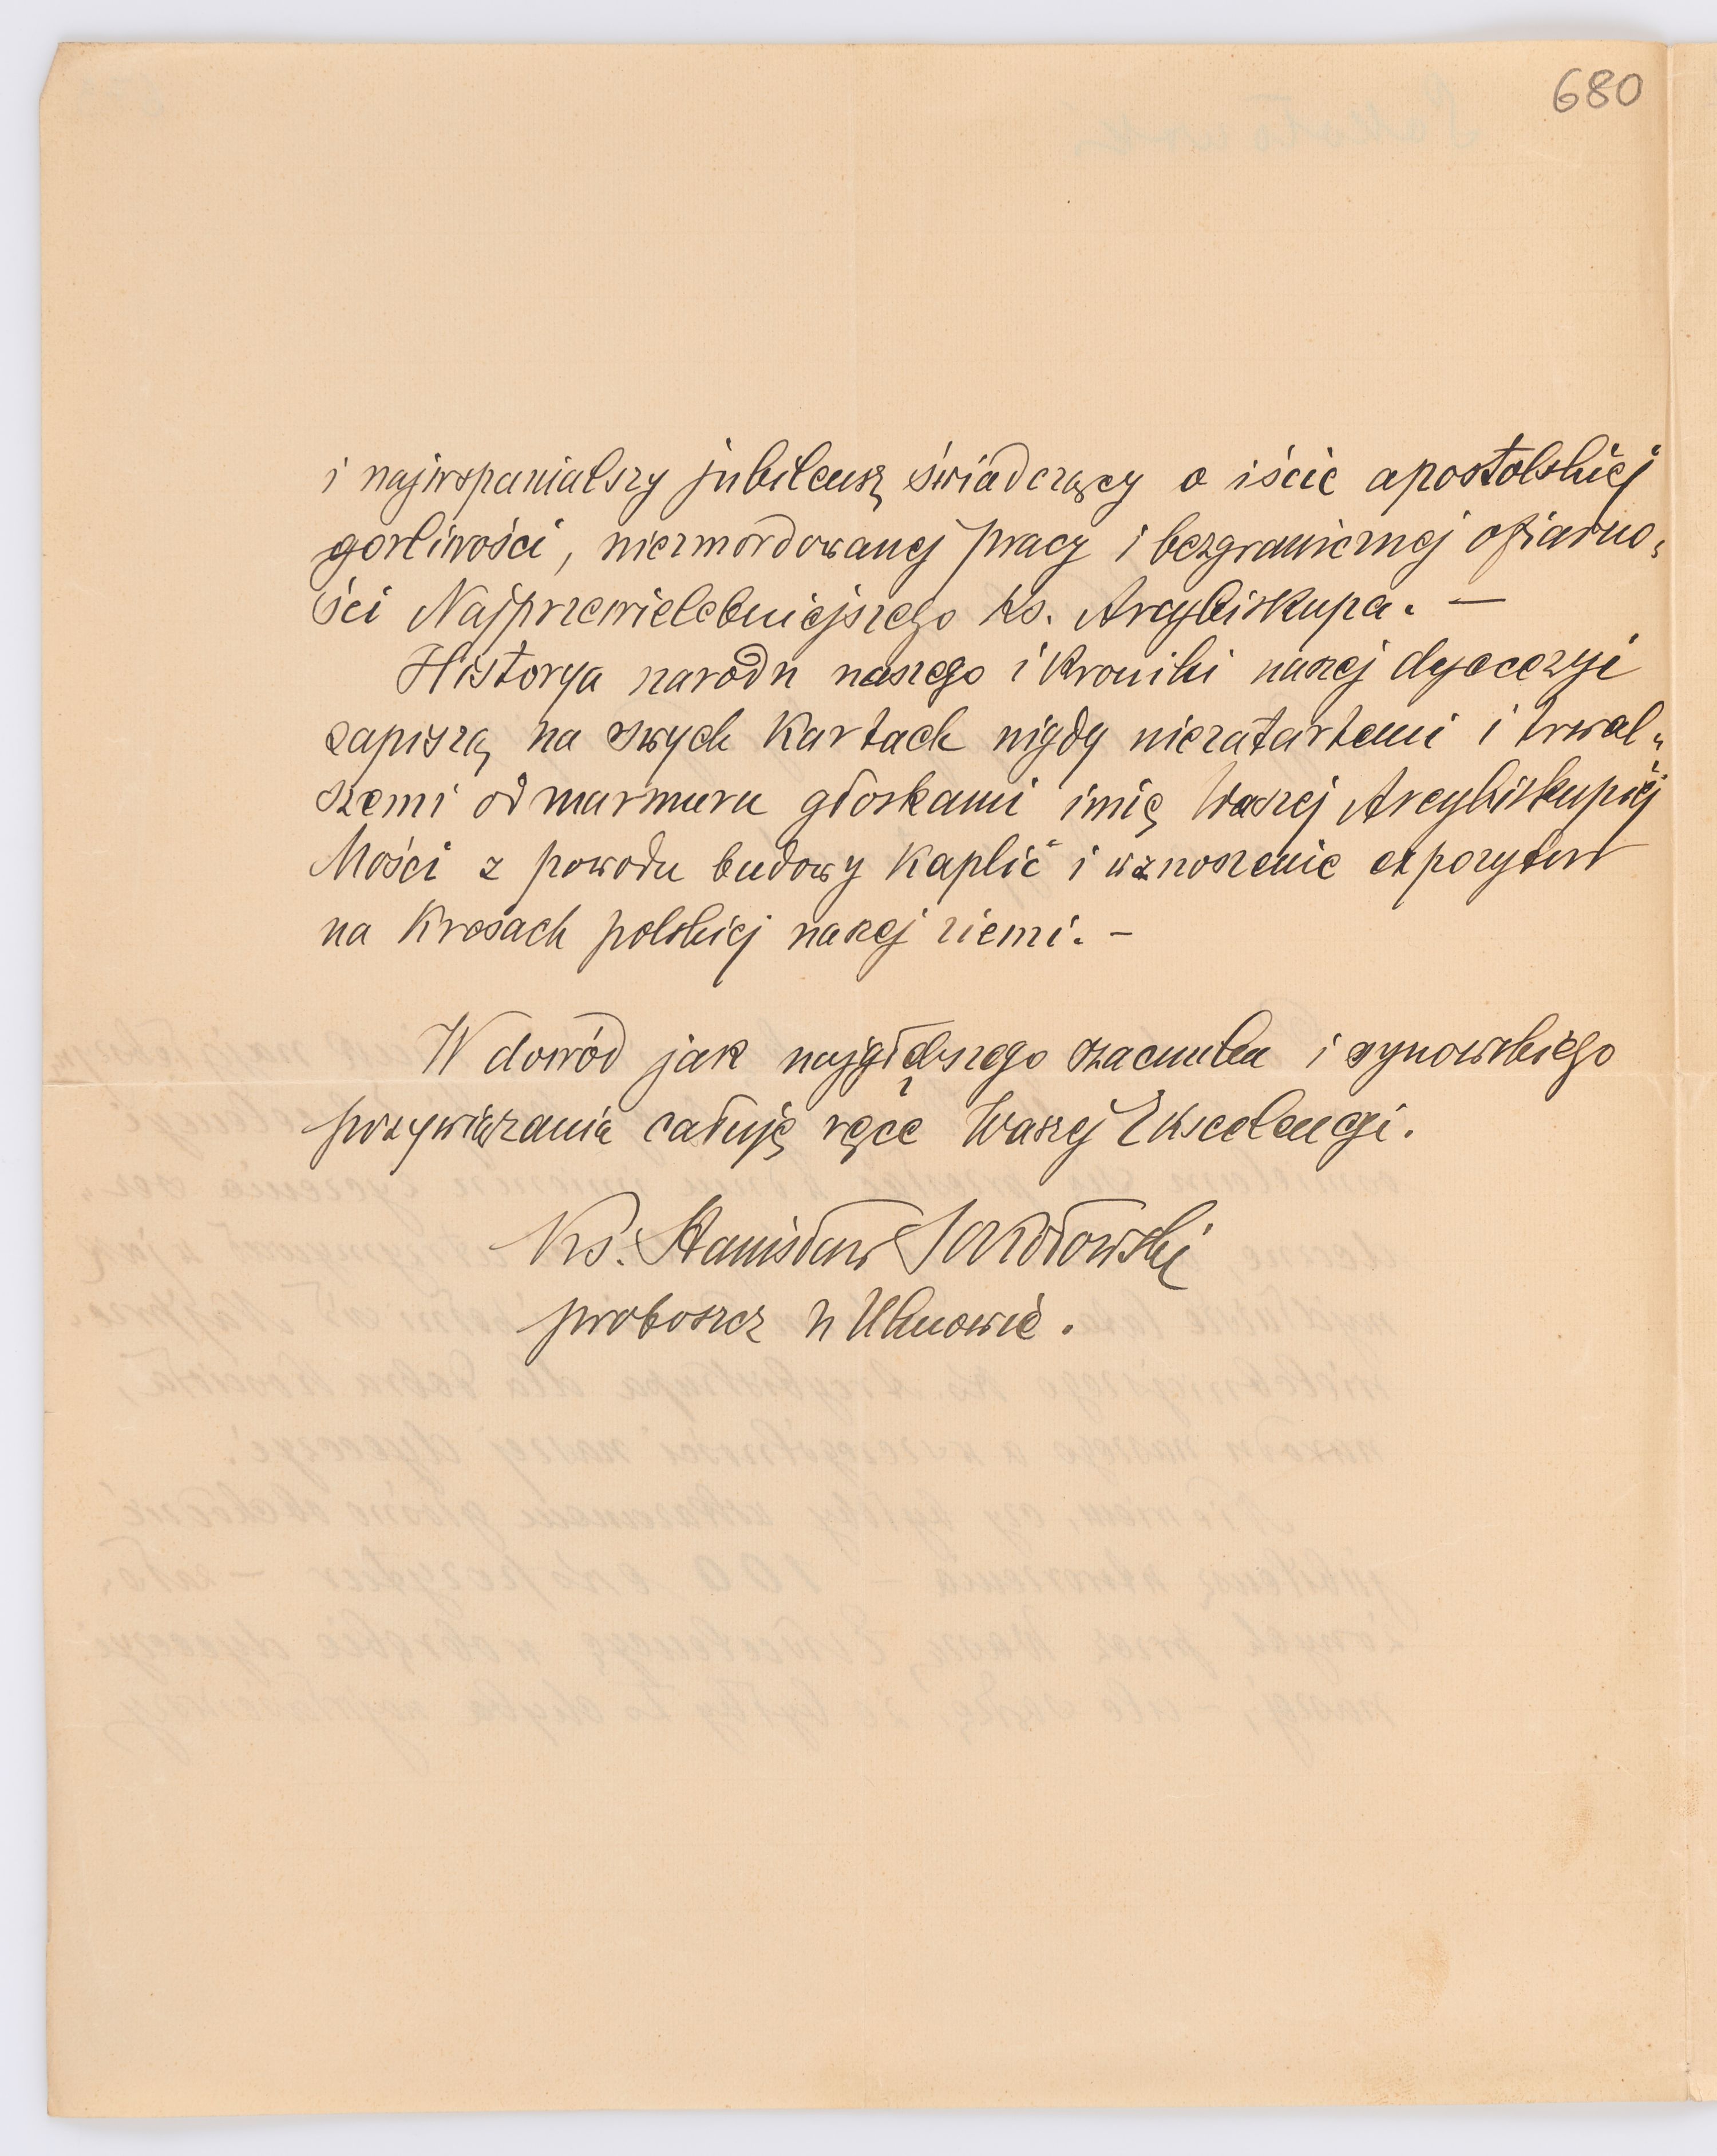 680
i najwspanialszy jubileusz świadczący o iście apostolskiej
gorliwości, niezmordowanej pracy i bezgranicznej ofiarno-
ści Najprzewielebniejszego Ks. Arcybiskupa. —
Historya narodu naszego i kroniki naszej dyecezyi
zapiszą na swych kartach nigdy niezatartemi i trwal-
szemi od marmuru głoskami imię Waszej Arcybiskupiej
Mości z powodu budowy kaplic i wznoszenie expozytur
na kresach polskiej naszej ziemi. —
W dowód jak najgłębszego szacunku i synowskiego
przywiązania całuję ręce Waszej Ekscelencyi.
Ks. Stanisław Sokołowski
proboszcz w Uhnowie.